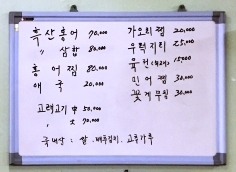 흑산홍어 70,000
〃 삼합 80,000
홍어찜 80,000
애국 20,000
고래고기 中 50,000
〃 大 70,000
가오리찜 20,000
우럭지리 25,000
육전(육래) 15,000
민어찜 30,000
꽃게무침 30,000
국내산 : 쌀, 배추김치, 고춧가루